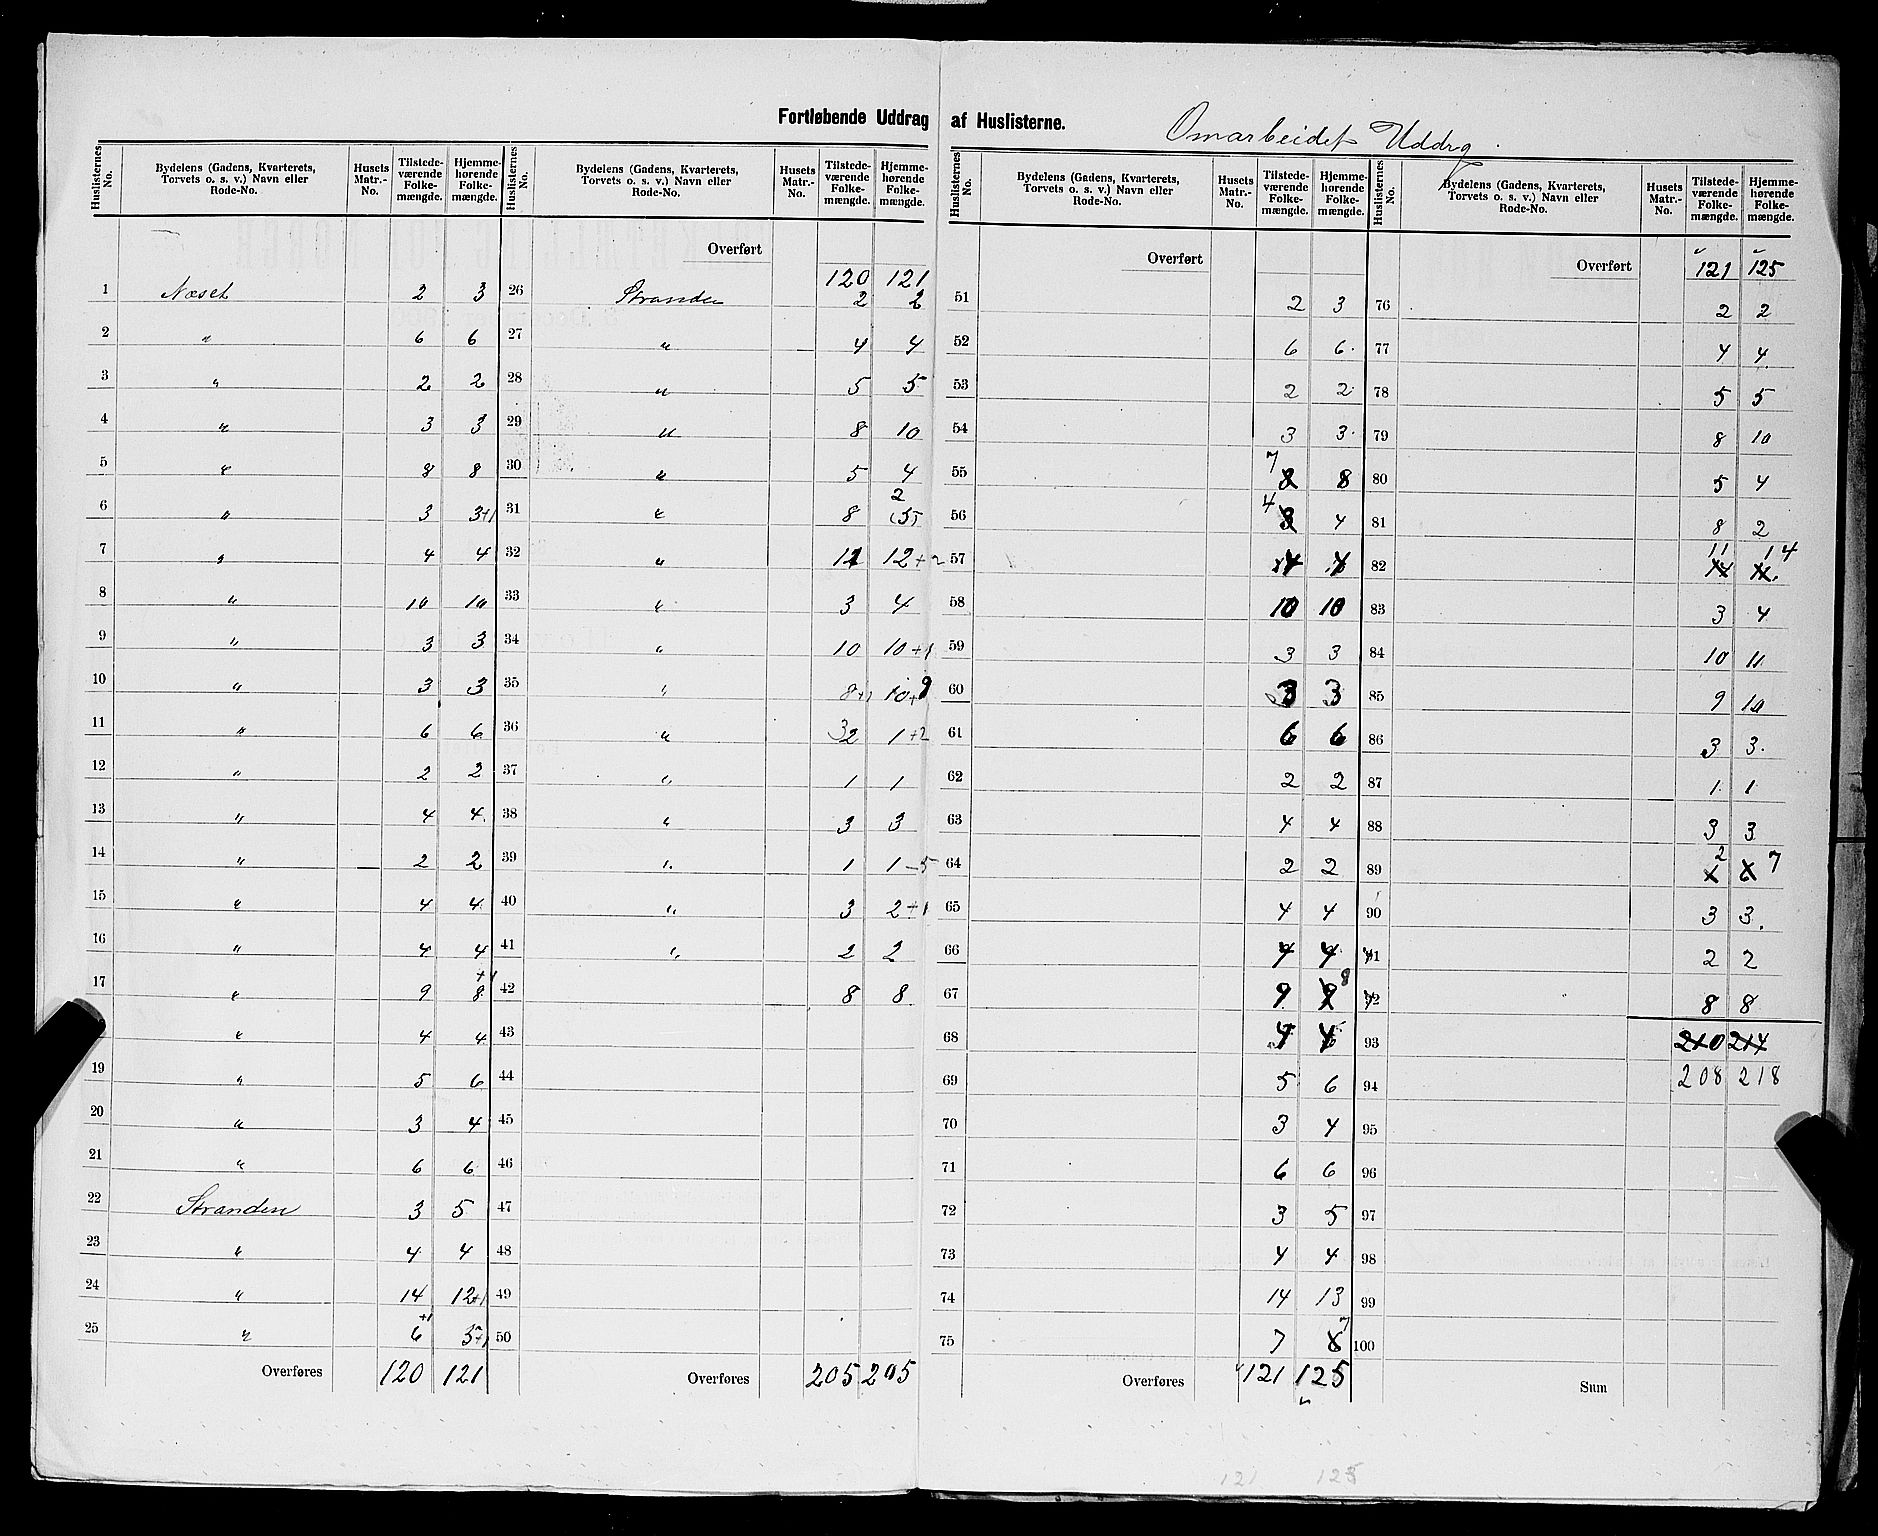 Fortløbende Uddrag af Huslisterne.
Omarbeidet Uddrg.
Huslisternes No. | Bydelens (Gadens, Kvarterets, Torvets o. s. v.) Navn eller Rode-No. | Husets Matr.-No. | Tilstede-værende Folke-mængde. | Hjemme-hørende Folke-mængde.
1 Næset 2 3
2 " 6 6
3 " 2 2
4 " 3 3
5 " 8 8
6 " 3 3+1
7 " 4 4
8 " 10 10
9 " 3 3
10 " 3 3
11 " 6 6
12 " 2 2
13 " 4 4
14 " 2 2
15 " 4 4
16 " 4 4
17 " 9 8 +1
" 4 4
19 " 5 6
20 " 3 4
21 " 6 6
22 Stranden 3 5
23 " 4 4
24 " 14 12+1
25 " 6 +1 5+1
Overføres 120 121
Huslisternes No. | Bydelens (Gadens, Kvarterets, Torvets o. s. v.) Navn eller Rode-No. | Husets Matr.-No. | Tilstede-værende Folke-mængde. | Hjemme-hørende Folke-mængde.
Overført 120 121
26 Stranden 2 2
27 " 4 4
28 " 5 5
29 " 8 10
30 " 5 4
31 " 8 2
32 " 11 12+2
33 " 3 4
34 " 10 10+1
35 " 8+1 10+
36 " 32 1+2
37 " 1 1
38 " 3 3
39 " 1 1-5
40 " 3 2+1
41 " 2 2
42 8 8
43
44
45
46
47
48
49
50
Overføres 205 205
Huslisternes No. | Bydelens (Gadens, Kvarterets, Torvets o. s. v.) Navn eller Rode-No. | Husets Matr.-No. | Tilstede-værende Folke-mængde. | Hjemme-hørende Folke-mængde.
Overført
51 2 3
52 6 6
53 2 2
54 3 3
55 7 8 8
56 4 3 4
57 4 4
58 10 10
59 3 3
60 3 3
61 6 6
62 2 2
63 4 4
64 2 2
65 4 4
66 4 4
67 9 9 8
68 4 4
69 5 6
70 3 4
71 6 6
72 3 5
73 4 4
74 14 13
75 7 8 7
Overføres 121 125
Huslisternes No. | Bydelens (Gadens, Kvarterets, Torvets o. s. v.) Navn eller Rode-No. | Husets Matr.-No. | Tilstede-værende Folke-mængde. | Hjemme-hørende Folke-mængde.
Overført 121 125
76 2 2
77 4 4
78 5 5
79 8 10
80 5 4
81 8 2
82 11 14
83 3 4
84 10 11
85 9 10
86 3 3
87 1 1
88 3 3
89 2 7
90 3 3
91 2 2
92 8 8
93 210 214
94 208 218
95
96
97
98
99
100
Sum
121 125